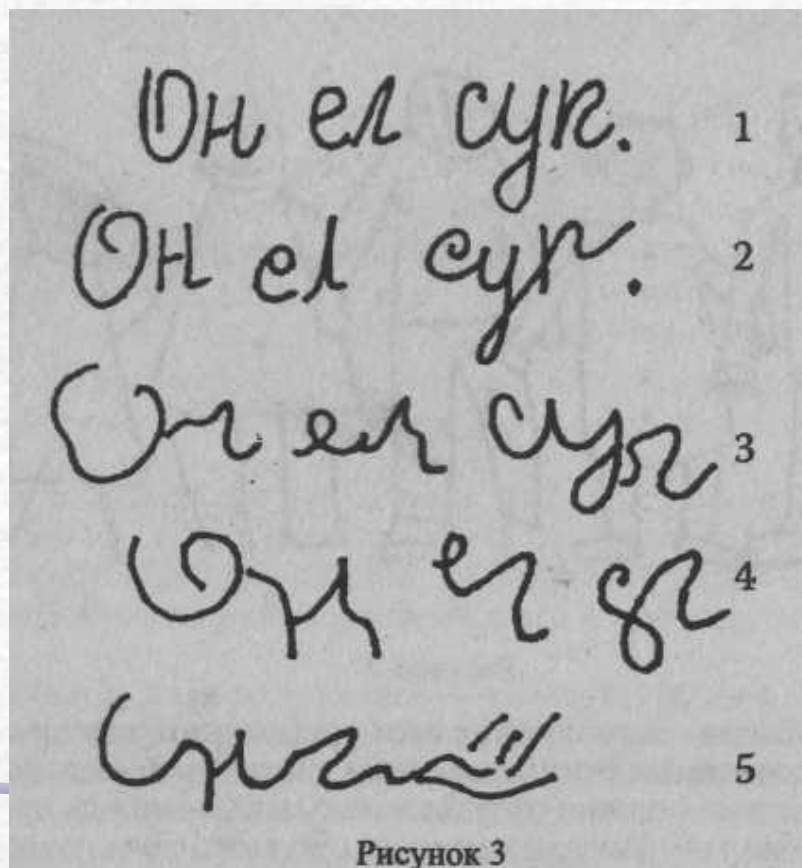 Он ел сук. 1
Он ел сук. 2
Он ел сук 3
Он 4
5
Рисунок 3